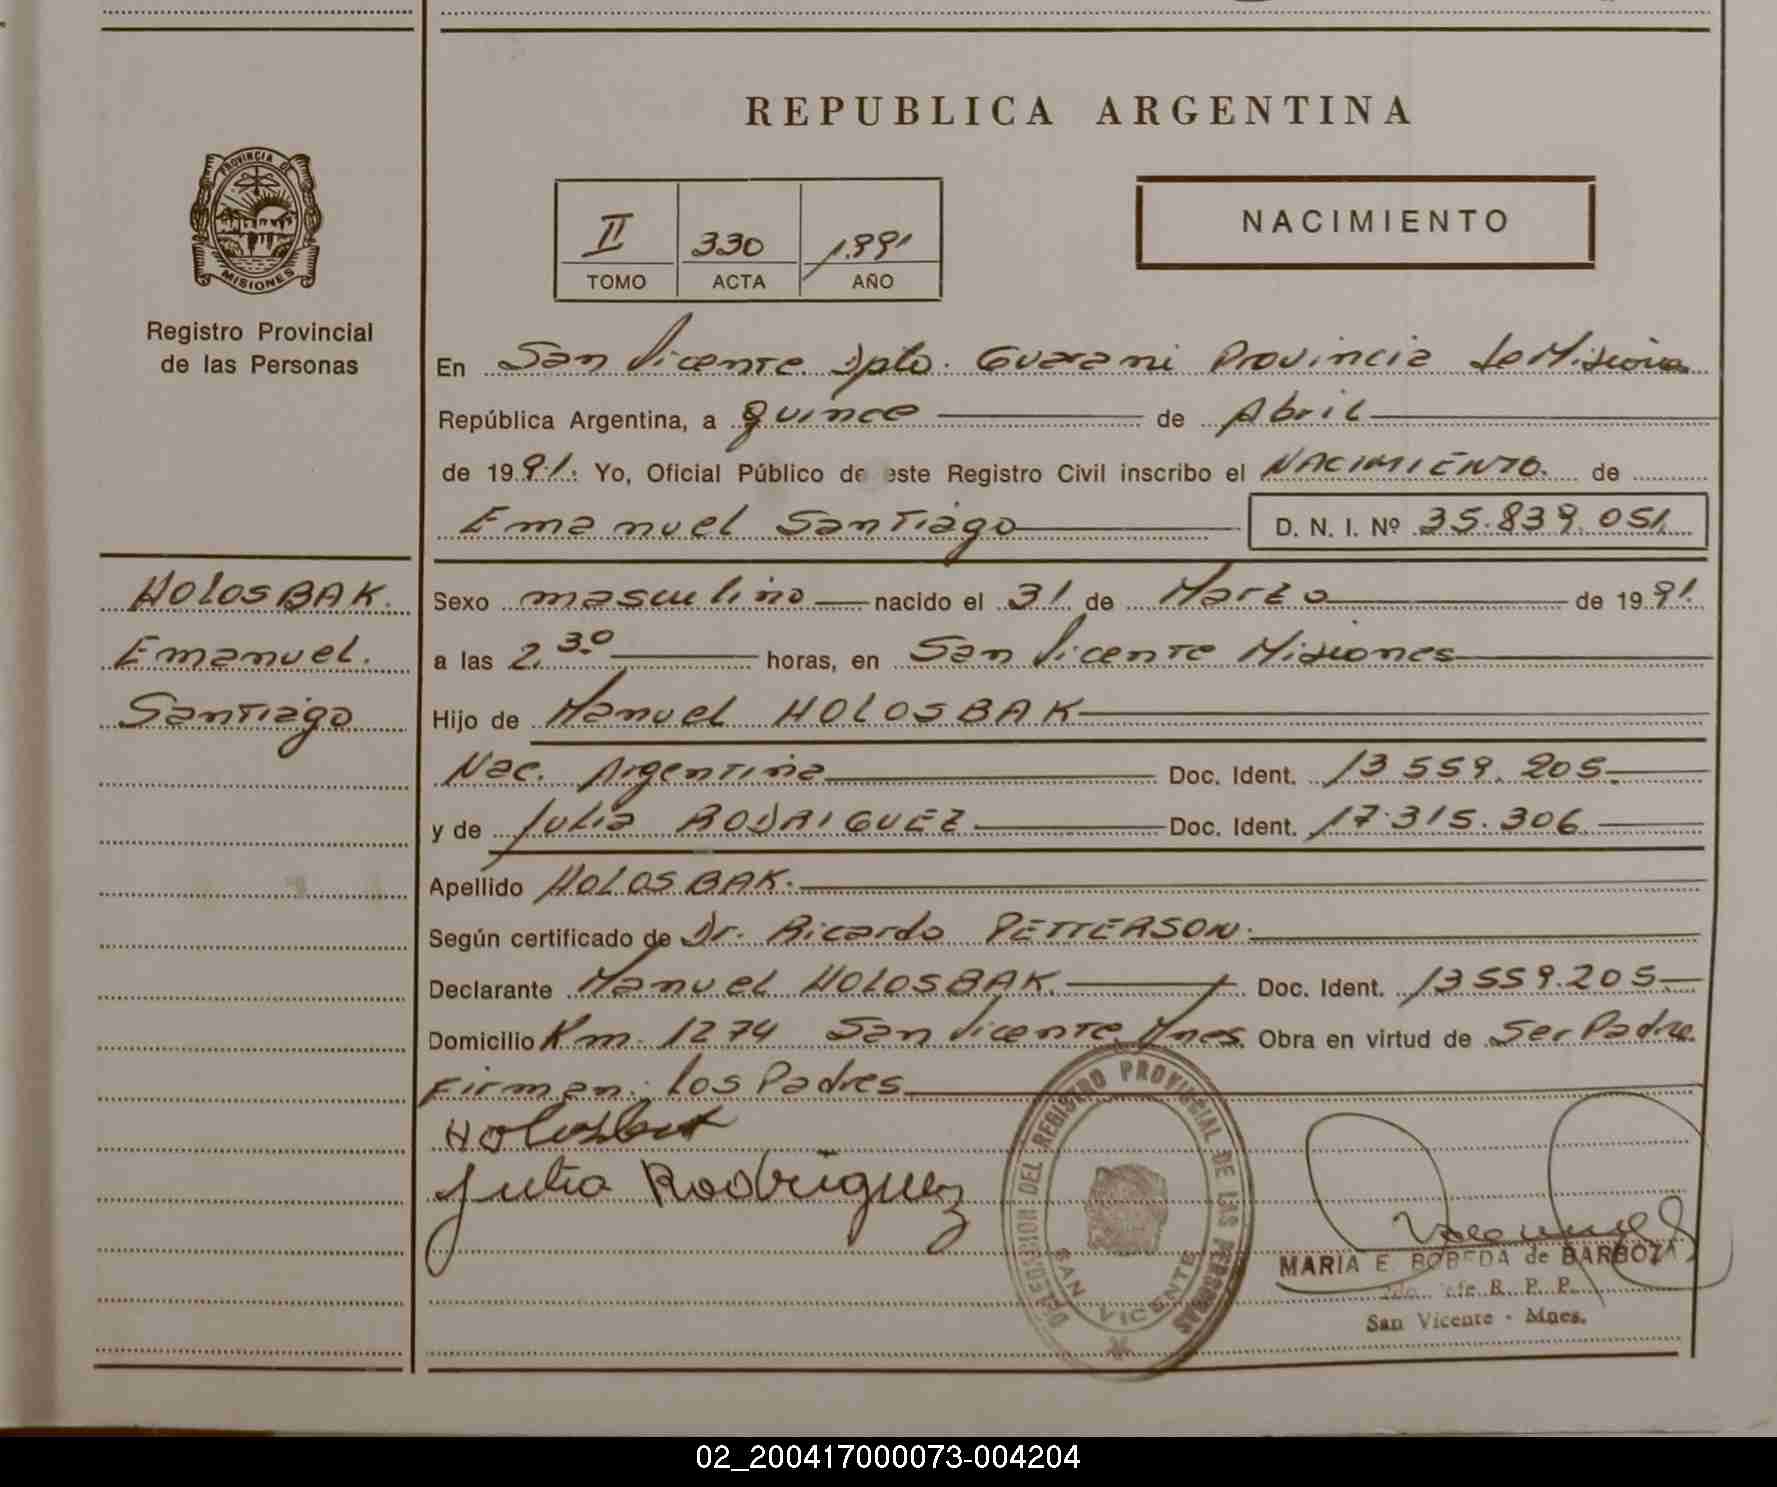 REPUBLICA ARGENTINA
PROVINCIA DE
MISIONES
Registro Provincial
de las Personas
II 330 1.991
TOMO ACTA AÑO
NACIMIENTO
En San Vicente Dpto. Guarani Provincia de Misiones
República Argentina, a quince de Abril
de 1991. Yo, Oficial Público de este Registro Civil inscribo el NACIMIENTO. de
Emanuel Santiago D. N. I. Nº 35.839.051
HOLOSBAK.
Emanuel.
Santiago
Sexo masculino nacido el 31 de Marzo de 1991.
a las 2,30 horas, en San Vicente Misiones
Hijo de Manuel HOLOSBAK
Nac. Argentina Doc. Ident. 13.559.205.
y de Julia RODRIGUEZ Doc. Ident. 17.315.306
Apellido HOLOSBAK.
Según certificado de Dr. Ricardo PETTERSON.
Declarante Manuel HOLOSBAK. Doc. Ident. 13559.205
Domicilio Km. 1274 San Vicente Mnes. Obra en virtud de Ser Padre.
Firman: Los Padres
Holosbak
Julia Rodriguez
DELEGACION DEL REGISTRO PROVINCIAL DE LAS PERSONAS
SAN VICENTE
MARIA E. BOBEDA de BARBOZA
R. P. P.
San Vicente - Mnes.
02_200417000073-004204